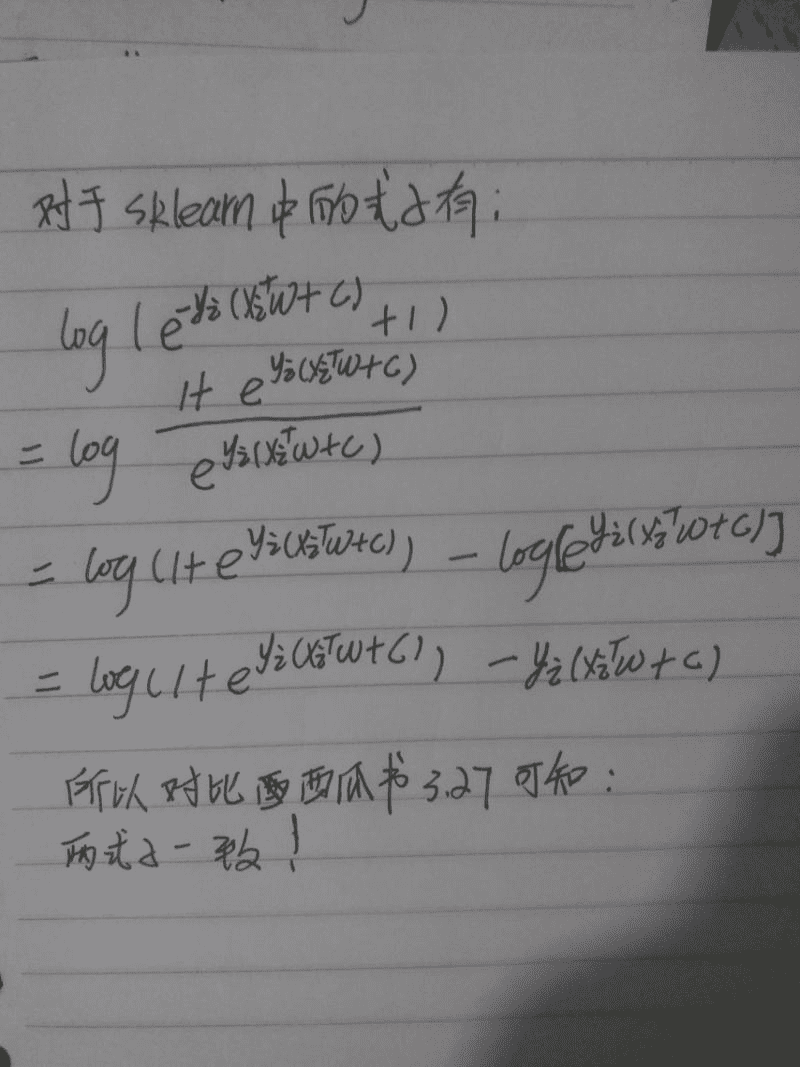 对于sklearn中的式子有:
log(e^{-y_i(x_i^Tω+c)}+1)
= log \frac{1+e^{y_i(x_i^Tω+c)}}{e^{y_i(x_i^Tω+c)}}
= log(1+e^{y_i(x_i^Tω+c)}) - log[e^{y_i(x_i^Tω+c)}]
= log(1+e^{y_i(x_i^Tω+c)}) - y_i(x_i^Tω+c)
所以对比西瓜书3.27可知:
两式子一致!